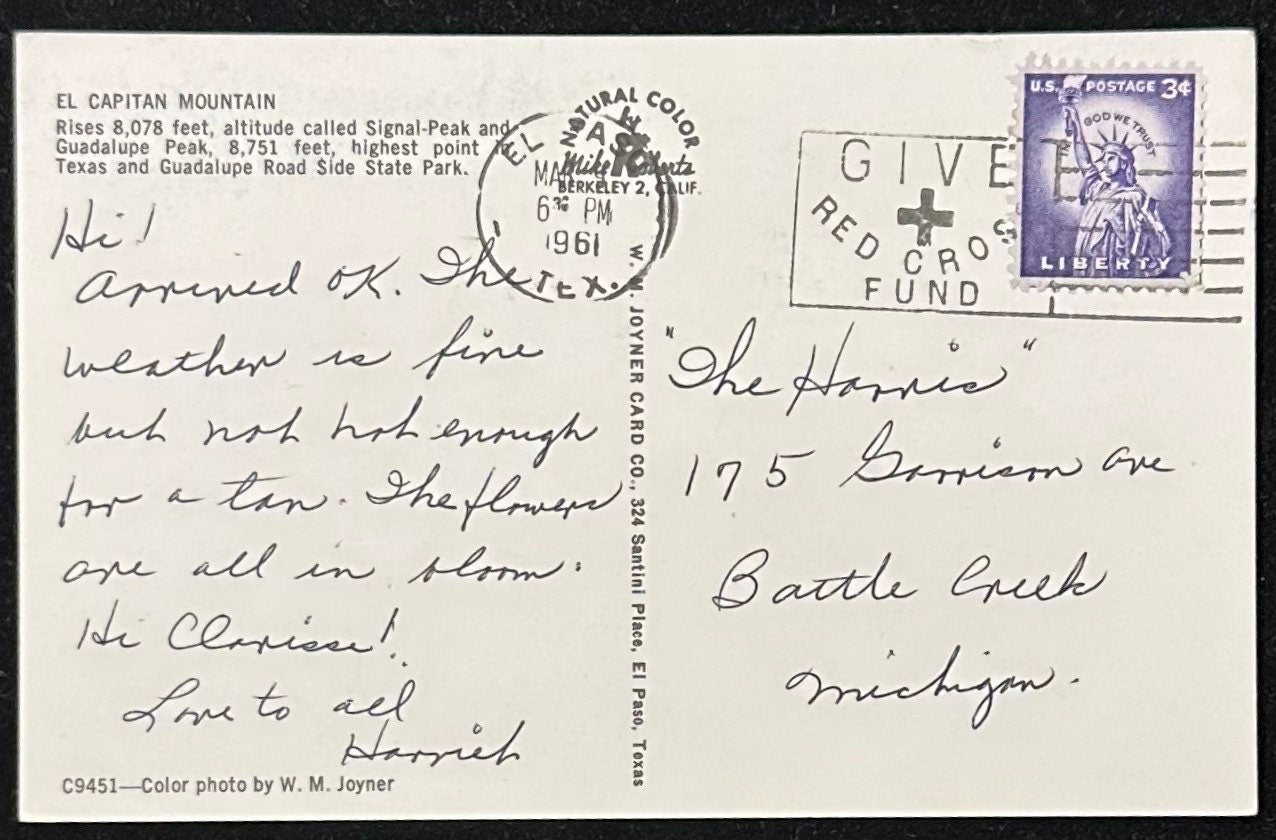 EL CAPITAN MOUNTAIN
Rises 8,078 feet, altitude called Signal-Peak and
Guadalupe Peak, 8,751 feet, highest point in
Texas and Guadalupe Road Side State Park.
Hi!
Arrived OK. The
weather is fine
but not hot enough
for a tan. The flowers
are all in bloom.
Hi Clarisse!
Love to all
Harriet
C9451—Color photo by W. M. Joyner
NATURAL COLOR
Mike Roberts
BERKELEY 2, CALIF.
EL PASO
MAR
6 PM
1961
TEX.
W. M. JOYNER CARD CO., 324 Santini Place, El Paso, Texas
GIVE
RED CROSS
FUND
U.S. POSTAGE 3¢
IN GOD WE TRUST
LIBERTY
"The Harris"
175 Garrison Ave
Battle Creek
Michigan.